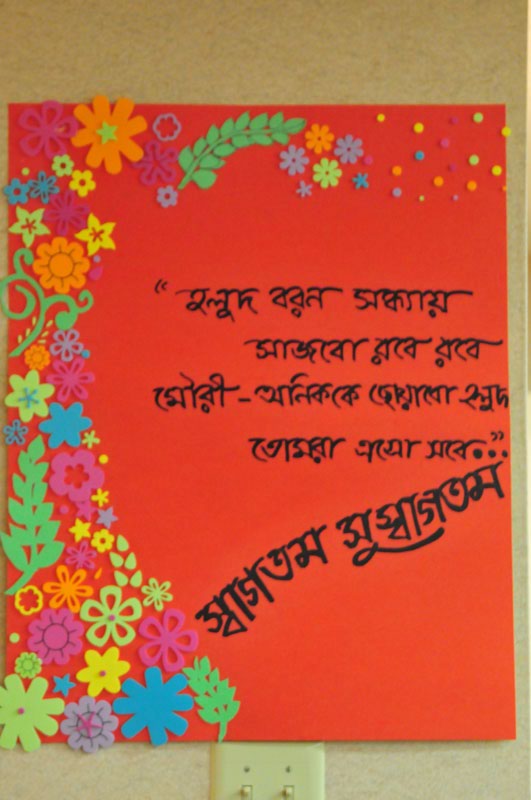 “হলুদ বরন সন্ধ্যায়
সাজবো রবে রবে
মৌরী-অনিককে ছোয়াবো হলুদ
তোমরা এসো সবে...”
স্বাগতম সুস্বাগতম